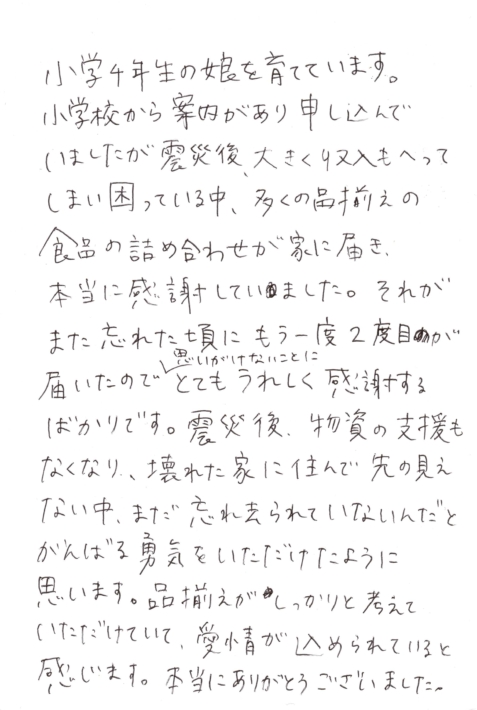 小学4年生の娘を育てています。
小学校から案内があり申し込んで
いましたが震災後、大きく収入もへって
しまい困っている中、多くの品揃えの
食品の詰め合わせが家に届き、
本当に感謝していました。それが
また忘れた頃にもう一度2度目が
思いがけないことに
届いたのでとてもうれしく感謝する
ばかりです。震災後、物資の支援も
なくなり、壊れた家に住んで先の見え
ない中、まだ忘れ去られていないんだと
がんばる勇気をいただけたように
思います。品揃えがしっかりと考えて
いただけていて、愛情が込められていると
感じます。本当にありがとうございました。